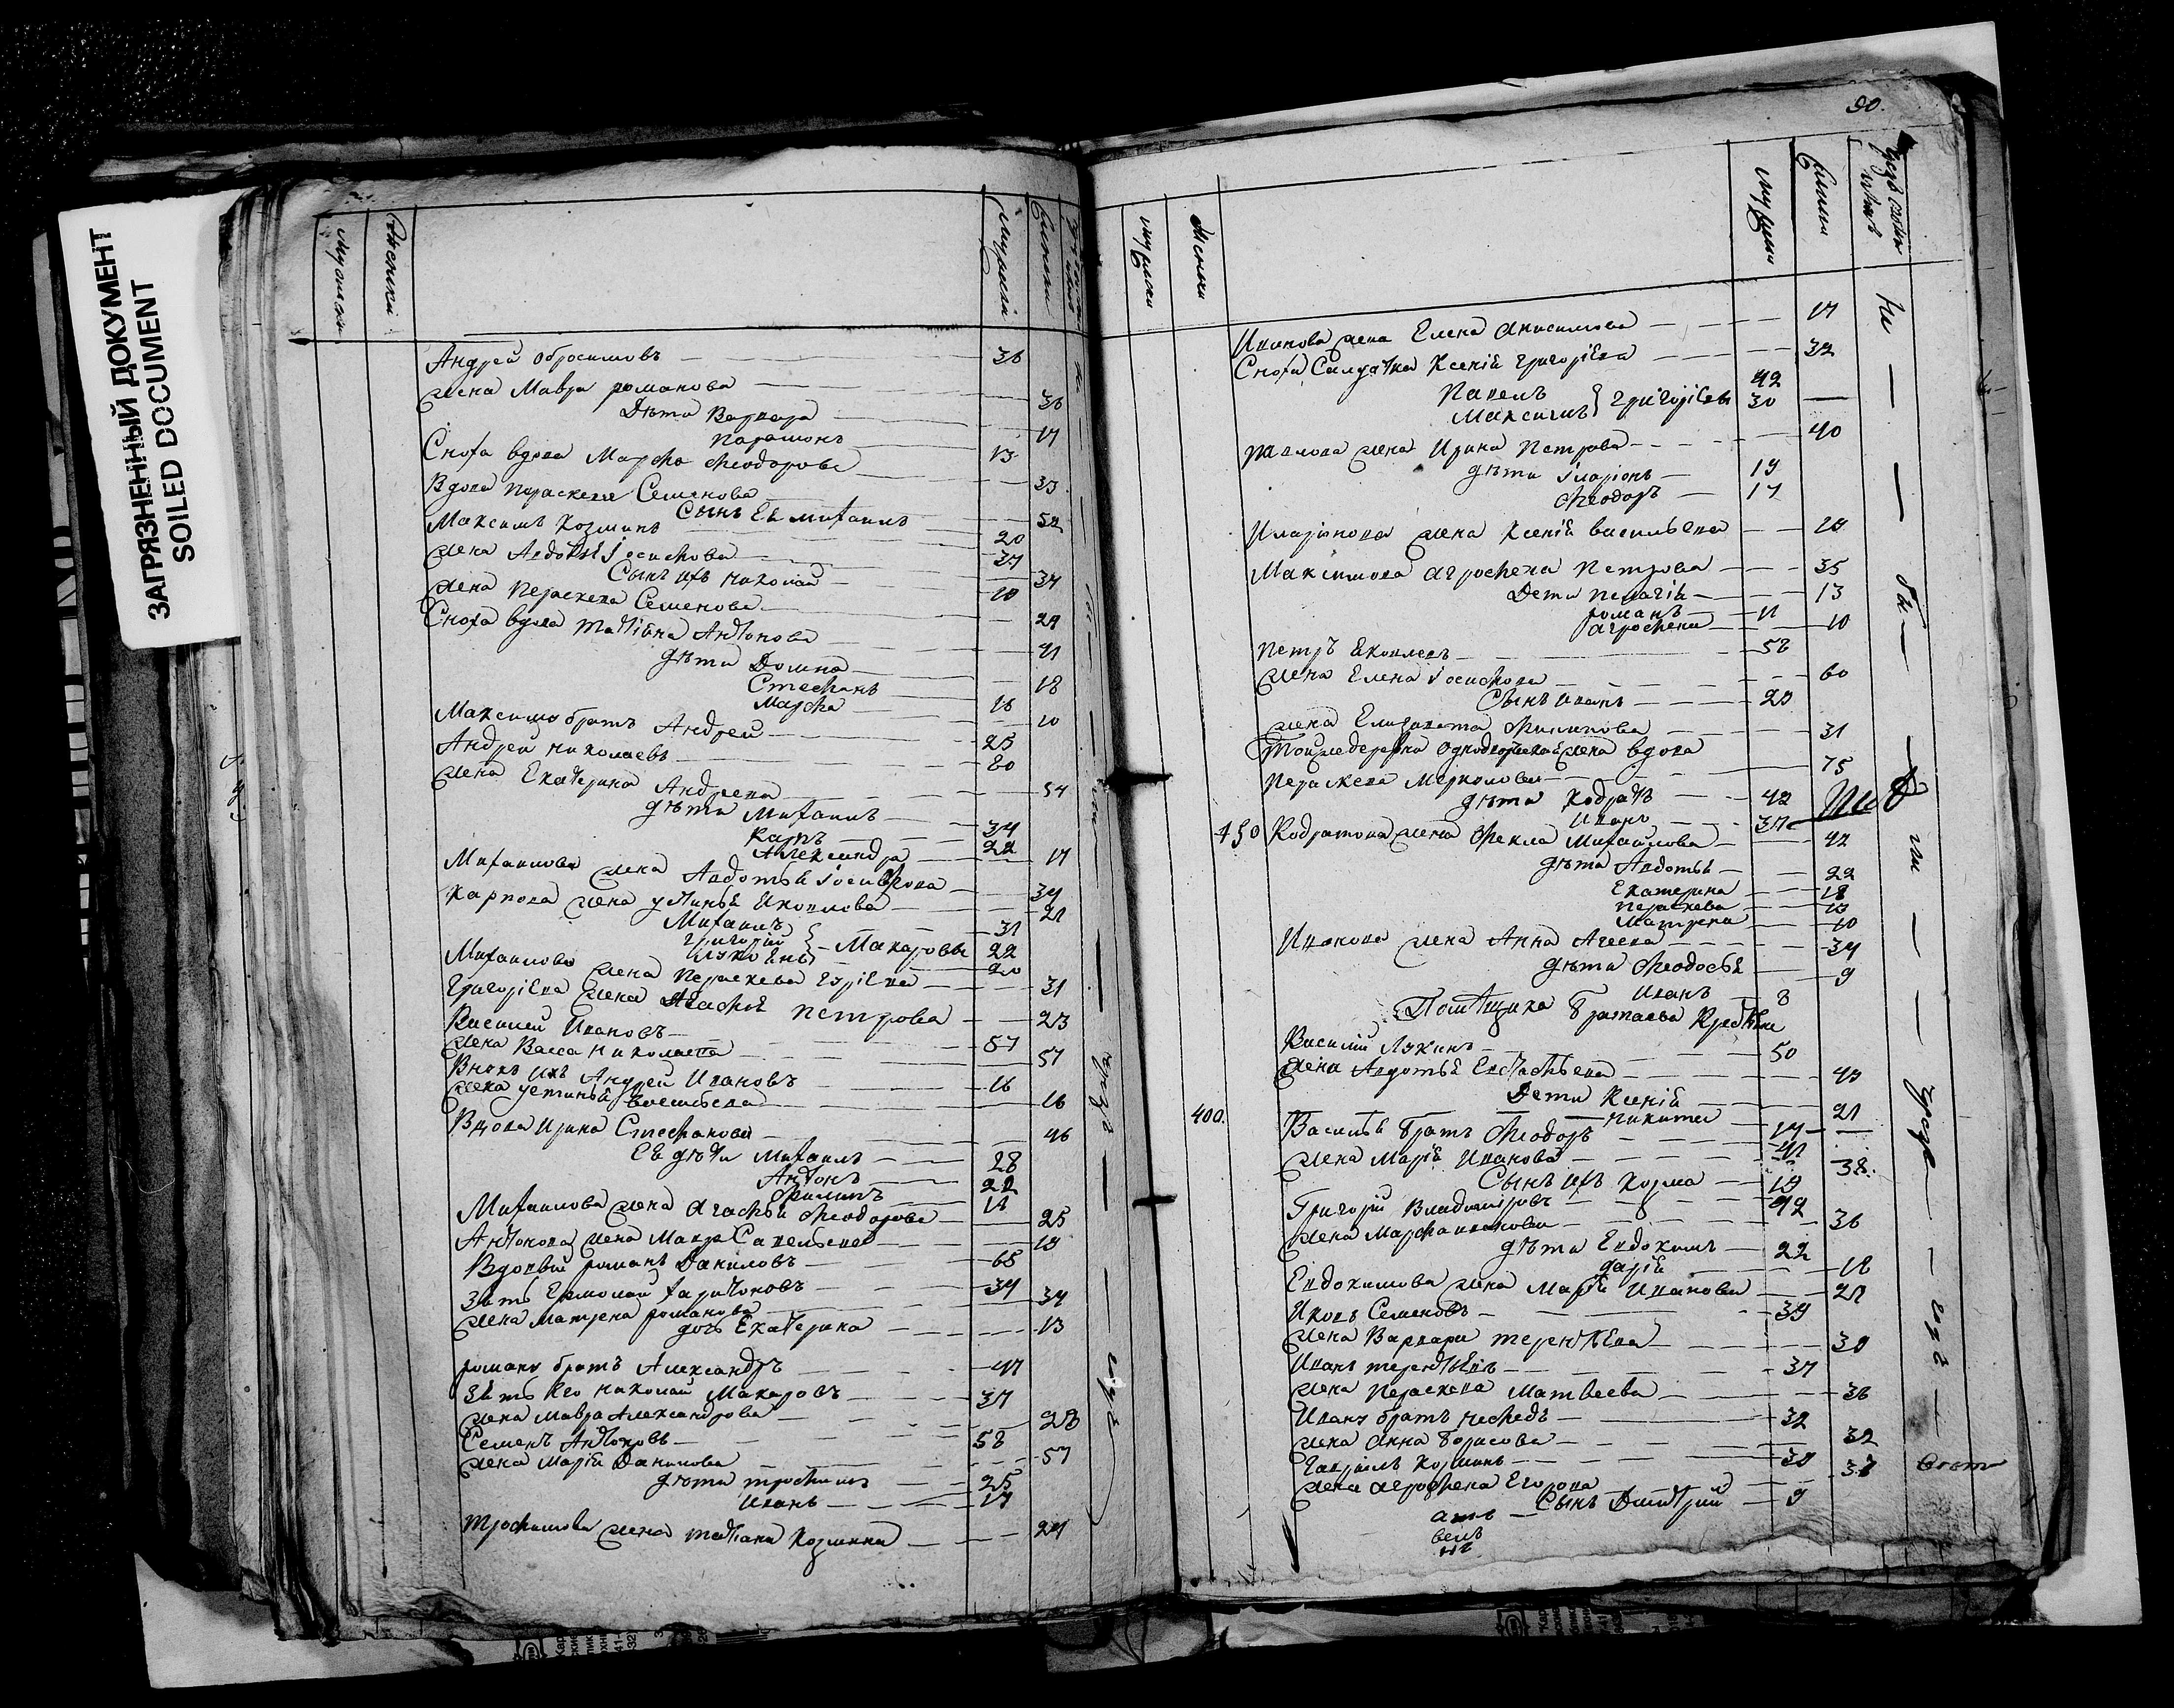 ЗАГРЯЗНЕННЫЙ ДОКУМЕНТ
SOILED DOCUMENT
Андрей Обросимовъ 36
жена Мавра романова 36
Дѣти Варвара 17
парамонъ 13
Сноха вдова Марѳа Ѳеодорова 33
Вдова параскева Семенова 52
Сынъ Её михаилъ 20
Максимъ Козминъ 37
жена Авдотья Iосифова 37
Сынъ ихъ николай 10
жена параскева Семенова 29
Сноха вдова татіяна Антонова 41
дѣти Домна 18
Стефанъ 16
Марѳа 10
Максимо братъ Андрей 25
Андрей николаевъ 60
жена Екатерина Андреева 54
дѣти Михаилъ 34
Карпъ 22
Александра 17
Михаилова жена Авдотья Iосифова 34
Карпова жена устинья Яковлева 21
Михаилъ 31
григорій Макаровы 22
20
Михаилова жена параскева 31
григоріева жена Агафья петрова 23
Василей Ивановъ 57
жена Васса николаева 57
Внукъ ихъ Андрей Ивановъ 16
жена устинья васильева 16
Вдова Ирина Стефанова 46
Её дѣти Михаилъ 28
Антонъ 22
Филипъ 14
Михаилова жена Агафья Ѳеодорова 25
Антонова жена Мавра Савельева 19
Вдовый романъ Даниловъ 65
Зять Ермолай харитоновъ 34
жена матрена романова 34
дочь Екатерина 13
романа братъ Александръ 47
Зять Его николай Макаровъ 37
жена мавра Александрова 28
Семенъ Антоновъ 58
жена Марія Данилова 57
дѣти трофимъ 25
Иванъ 17
трофимова жена татіана Козмина 24
90.
мужески
женски
Иванова жена Елена Анисимова 17
Сноха Салдатка Ксенія григоріева 32
Павелъ 42
Максимъ григоріевы 30
павлова жена Ирина Петрова 40
дѣти Iларіонъ 19
Ѳеодоръ 17
Иларіонова жена Ксенія васильева 20
Максимова агрофена Петрова 35
Дети пелагія 13
романъ 11
агрофена 10
петръ Яковлевъ 58
жена Елена Iосифова 60
Сынъ иванъ 20
жена Елизавета Филипова 31
Тойже деревни Однодворческая жена вдова
параскева меркулова 75
дѣти Кодратъ 42
Иванъ 37
450 Кодратова жена Ѳекла Михайлова 42
дѣти Авдотья 22
Екатерина 18
параскева 13
матрена 10
Иванова жена Анна Агеева 34
дѣти Ѳеодосья 9
Иванъ 8
Помѣщика Братаева Крестьяне
Василій Лукинъ 50
жена Авдотья Евстафьева 43
Дети Ксенія 21
400. никита 17
Василья братъ Ѳеодоръ 41
жена Марія Иванова 38.
Сынъ ихъ Козма 19
Григорій Владимировъ 42
жена Марѳа иванова 36
дѣти Евдокимъ 22
дарія 18
Евдокимова жена Марія Иванова 21
Яковъ Семеновъ 39
жена Варвара терентьева 39
Иванъ терентьевъ 37
жена параскева Матвеева 36
Ивана братъ нефедъ 32
жена Анна Борисова 32
Гавріилъ Козминъ 39
жена агрофена Егорова 37
Сынъ Дмитрій 9